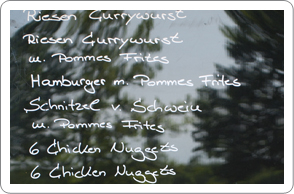 Riesen Currywurst
Riesen Currywurst
m. Pommes Frites
Hamburger m. Pommes Frites
Schnitzel v. Schwein
m. Pommes Frites
6 Chicken Nuggets
6 Chicken Nuggets